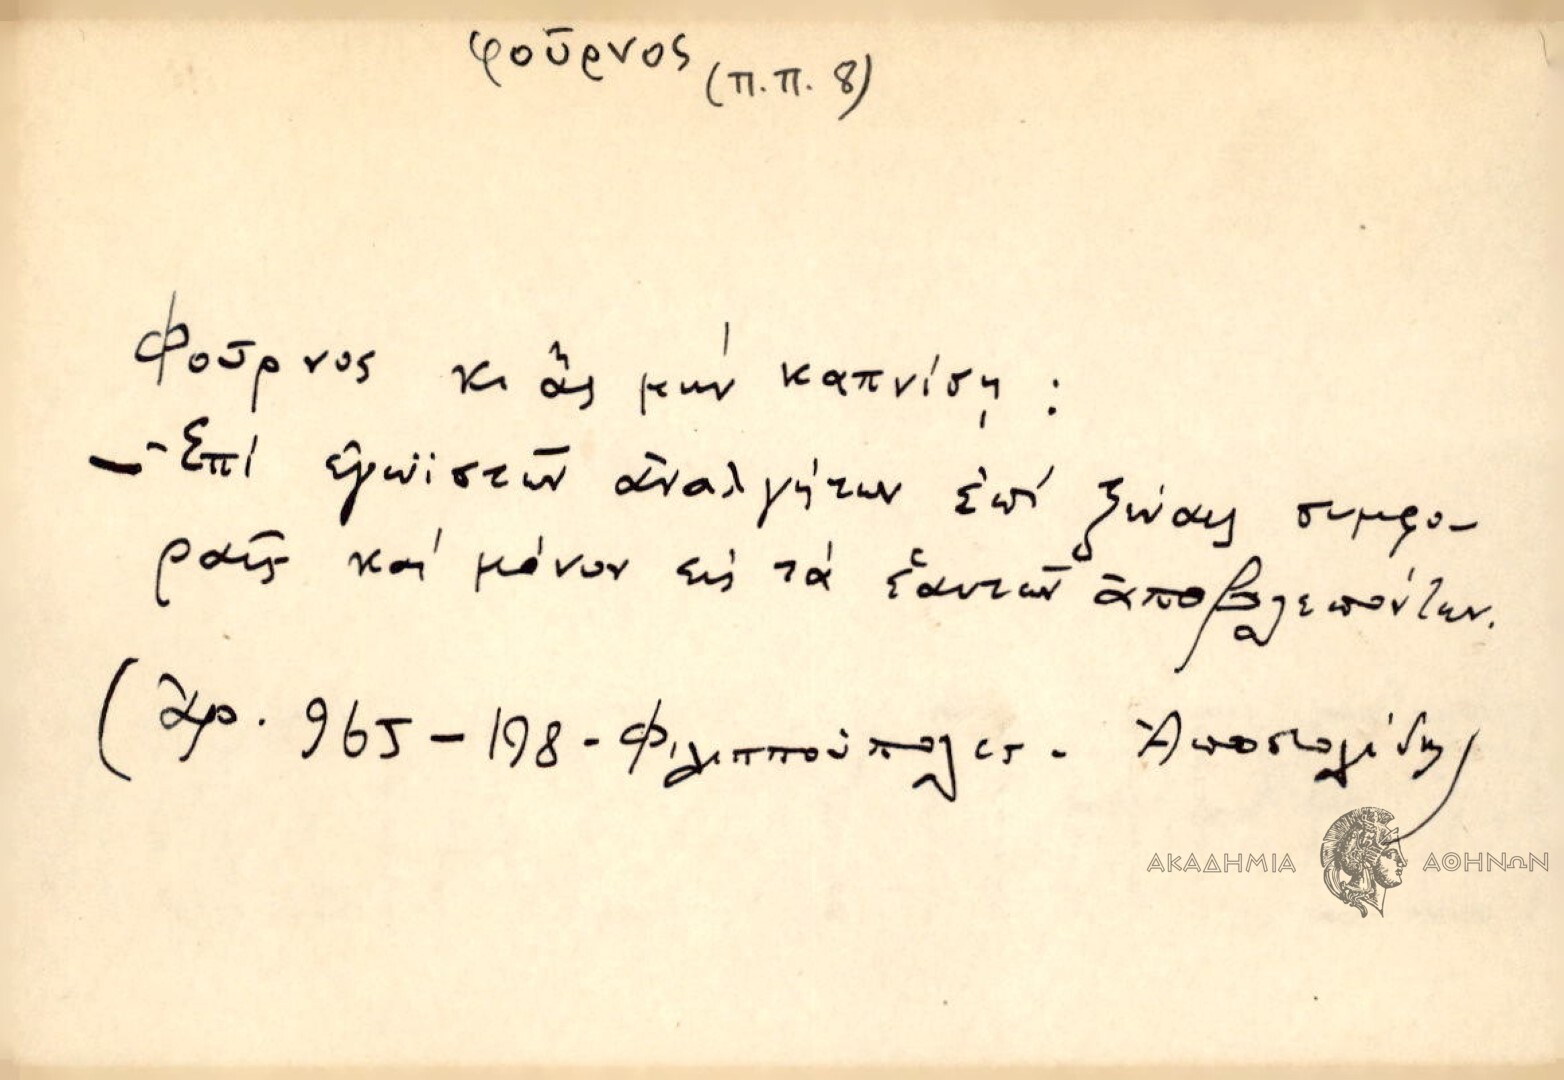 φοῦρνος (π.π. 8)
Φοῦρνος κι ἄς μήν καπνίσῃ :
- Ἐπί ἐγωϊστῶν ἀναλγήτων ἐπί ξέναις συμφο-
ραῖς καί μόνον εἰς τά ἑαυτῶν ἀποβλεπόντων.
(ἀρ. 965 - 198 - Φιλιππούπολις - Ἀποστολίδης)
ΑΚΑΔΗΜΙΑ ΑΘΗΝΩΝ